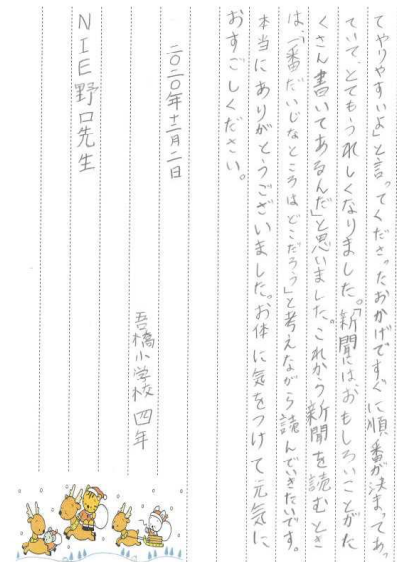 てやりやすいよ」と言ってくださったおかげですぐに順番が決まってあっ
ていて、とてもうれしくなりました。「新聞にはおもしろいことがた
くさん書いてあるんだ」と思いました。これから新聞を読むとき
は、「一番だいじなところはどこだろう」と考えながら読んでいきたいです。
本当にありがとうございました。お体に気をつけて元気に
おすごしください。
二〇二〇年十二月二日
吾橋小学校 四年
NIE野口先生